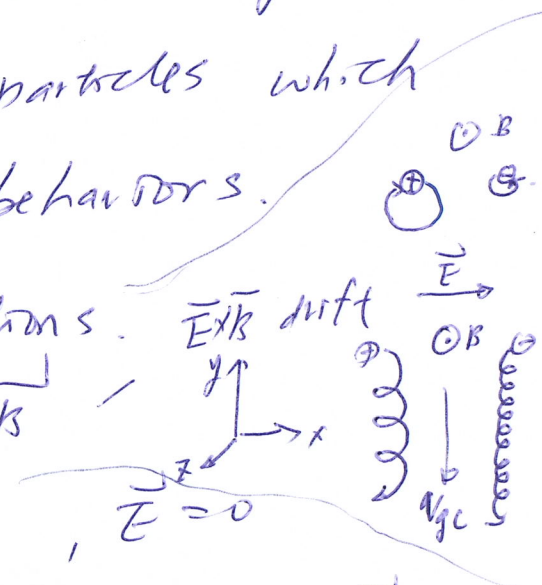 particles which
⊙ B
behaviors.
⊕ ⊖
E⃗
ions. E̅×B̅ drift
⊙B
⊕ ⊖
B
y
x
z
V_gc
, E⃗ = 0